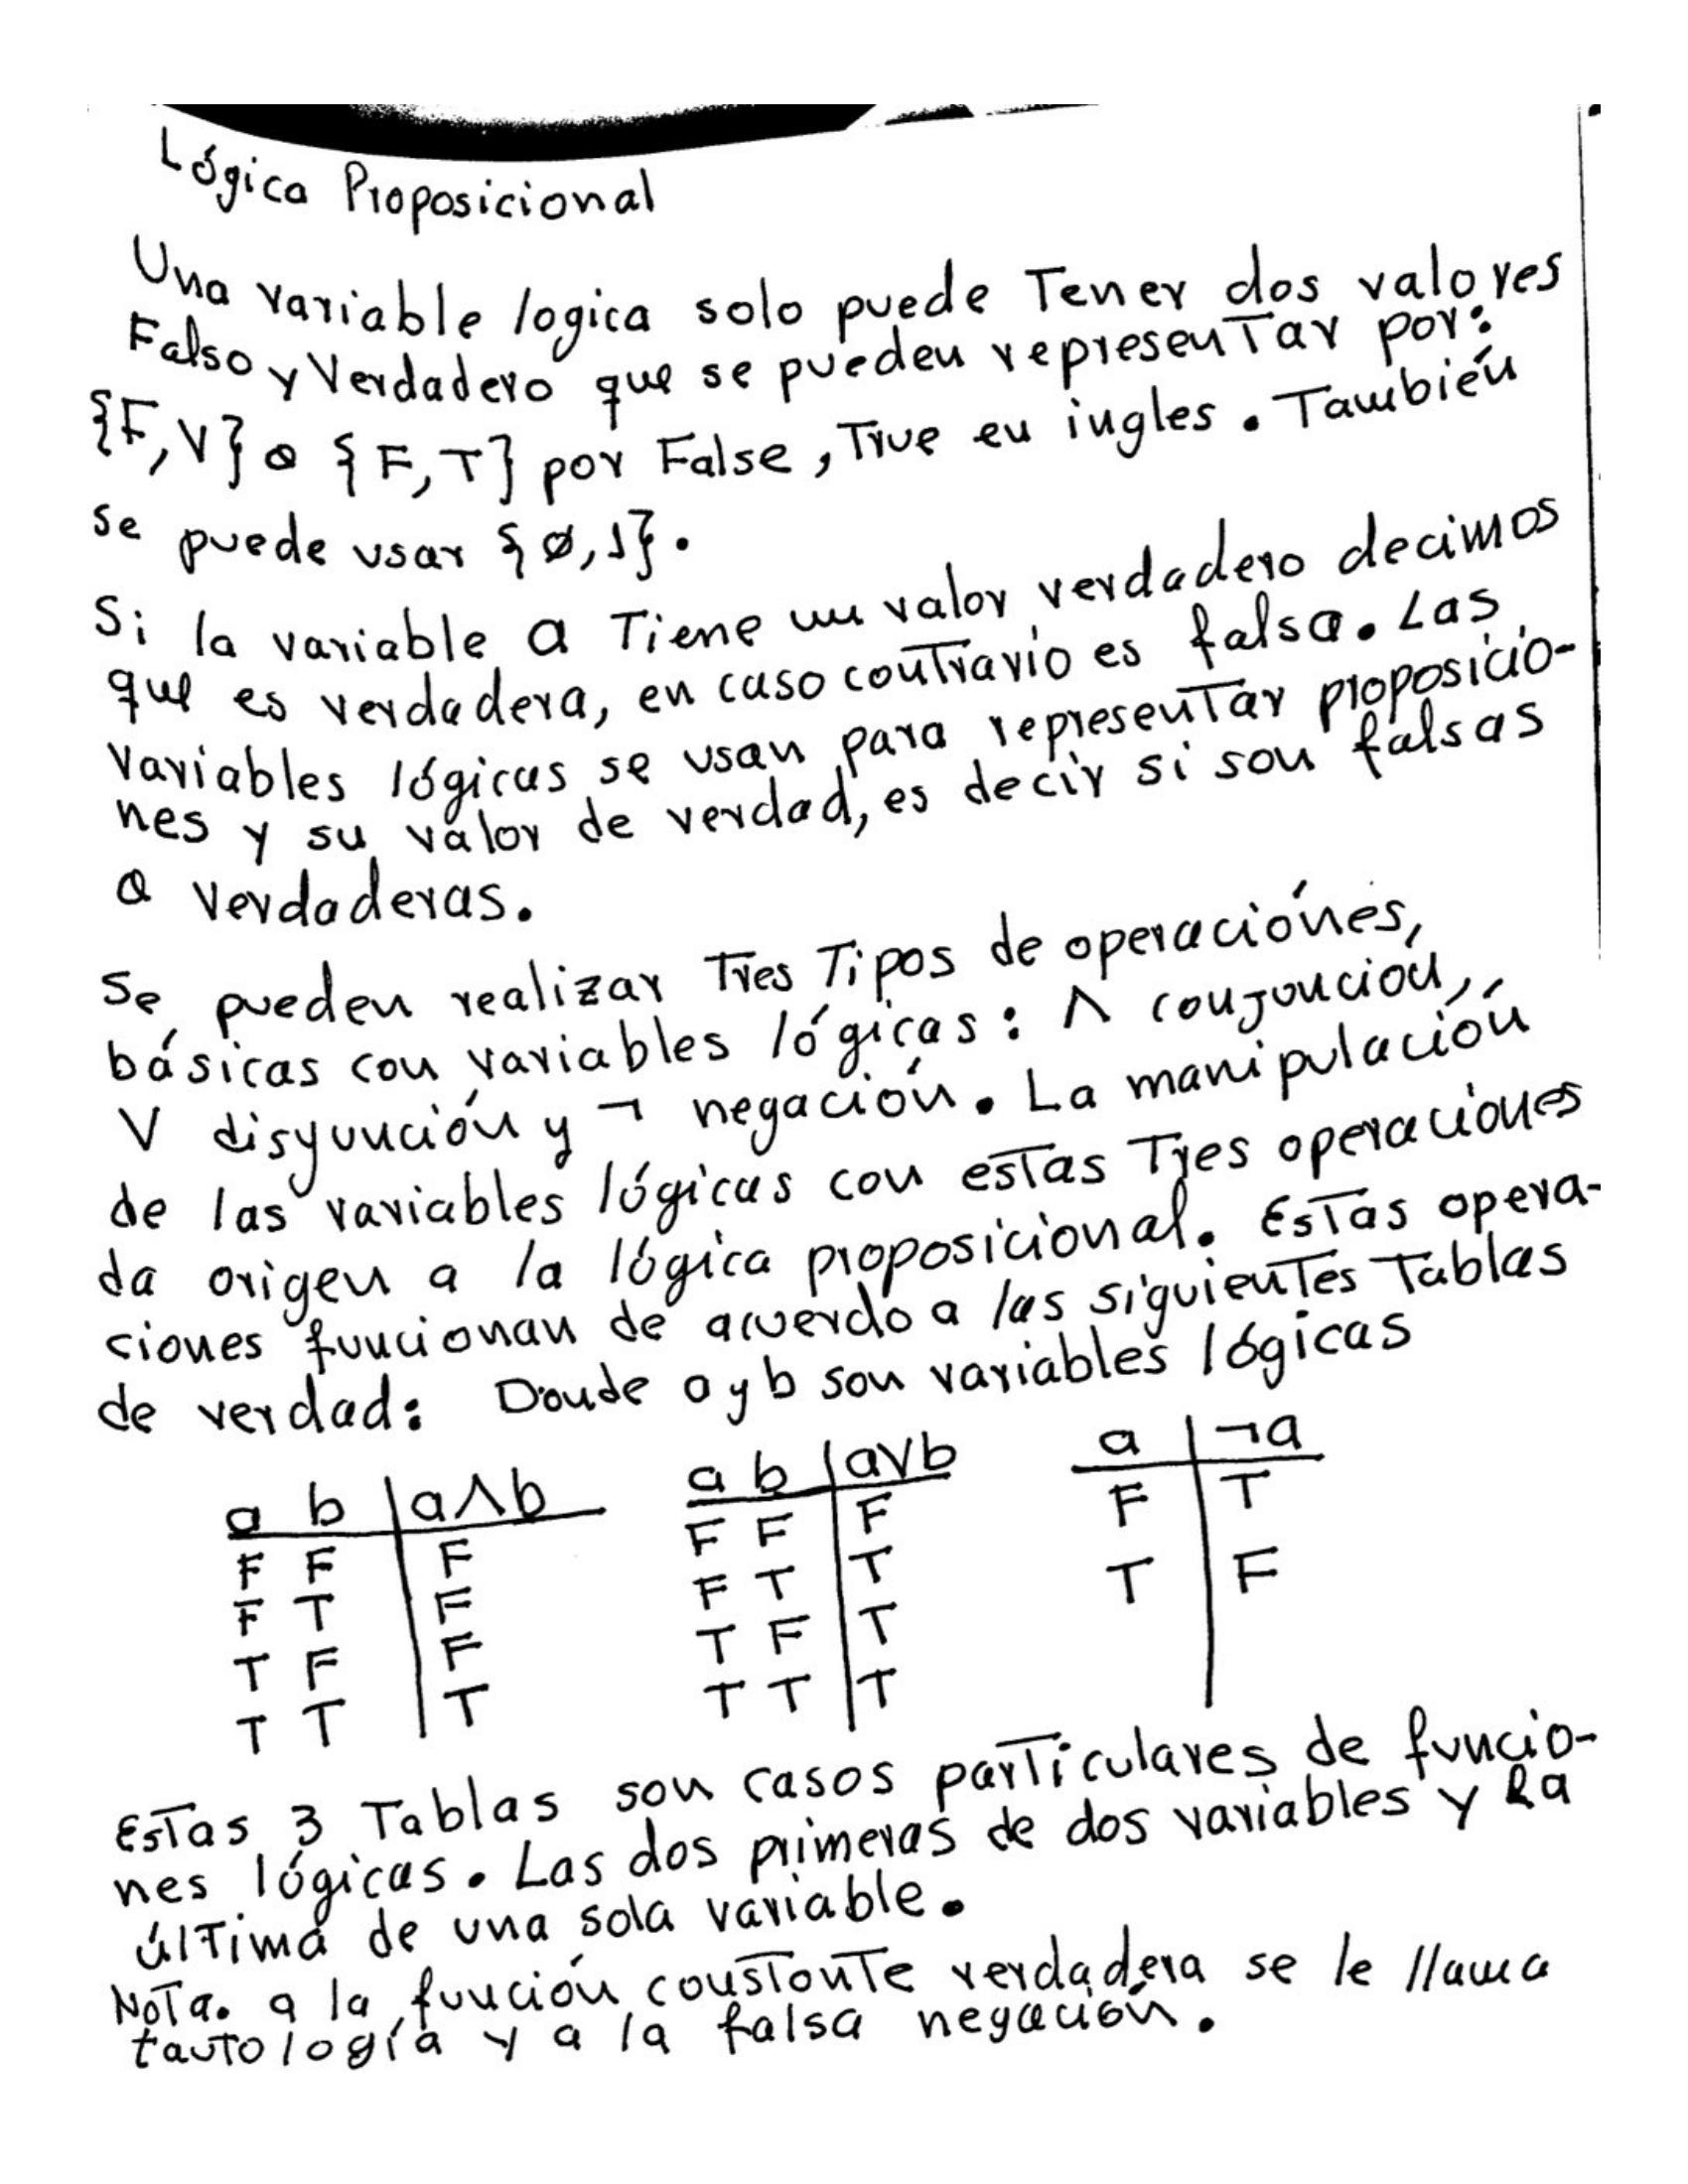 Lógica Proposicional
Una variable logica solo puede Tener dos valores
Falso y Verdadero que se pueden representar por:
{F,V} o {F,T} por False, True en ingles. También
se puede usar {ø,1}.
Si la variable a Tiene un valor verdadero decimos
que es verdadera, en caso contrario es falsa. Las
variables lógicas se usan para representar proposicio-
nes y su valor de verdad, es decir si son falsas
o verdaderas.
Se pueden realizar Tres Tipos de operaciónes,
básicas con variables lógicas: ∧ conjouncion,
∨ disyunción y ¬ negación. La manipulación
de las variables lógicas con estas Tres operaciones
da origen a la lógica proposicional. Estas opera-
ciones funcionan de acuerdo a las siguientes Tablas
de verdad: Donde a y b son variables lógicas
a b | a∧b a b | a∨b a | ¬a
F F | F F F | F F | T
F T | F F T | T T | F
T F | F T F | T
T T | T T T | T
Estas 3 Tablas son casos particulares de funcio-
nes lógicas. Las dos primeras de dos variables y la
última de una sola variable.
Nota. a la función constante verdadera se le llama
tautología y a la falsa negación.